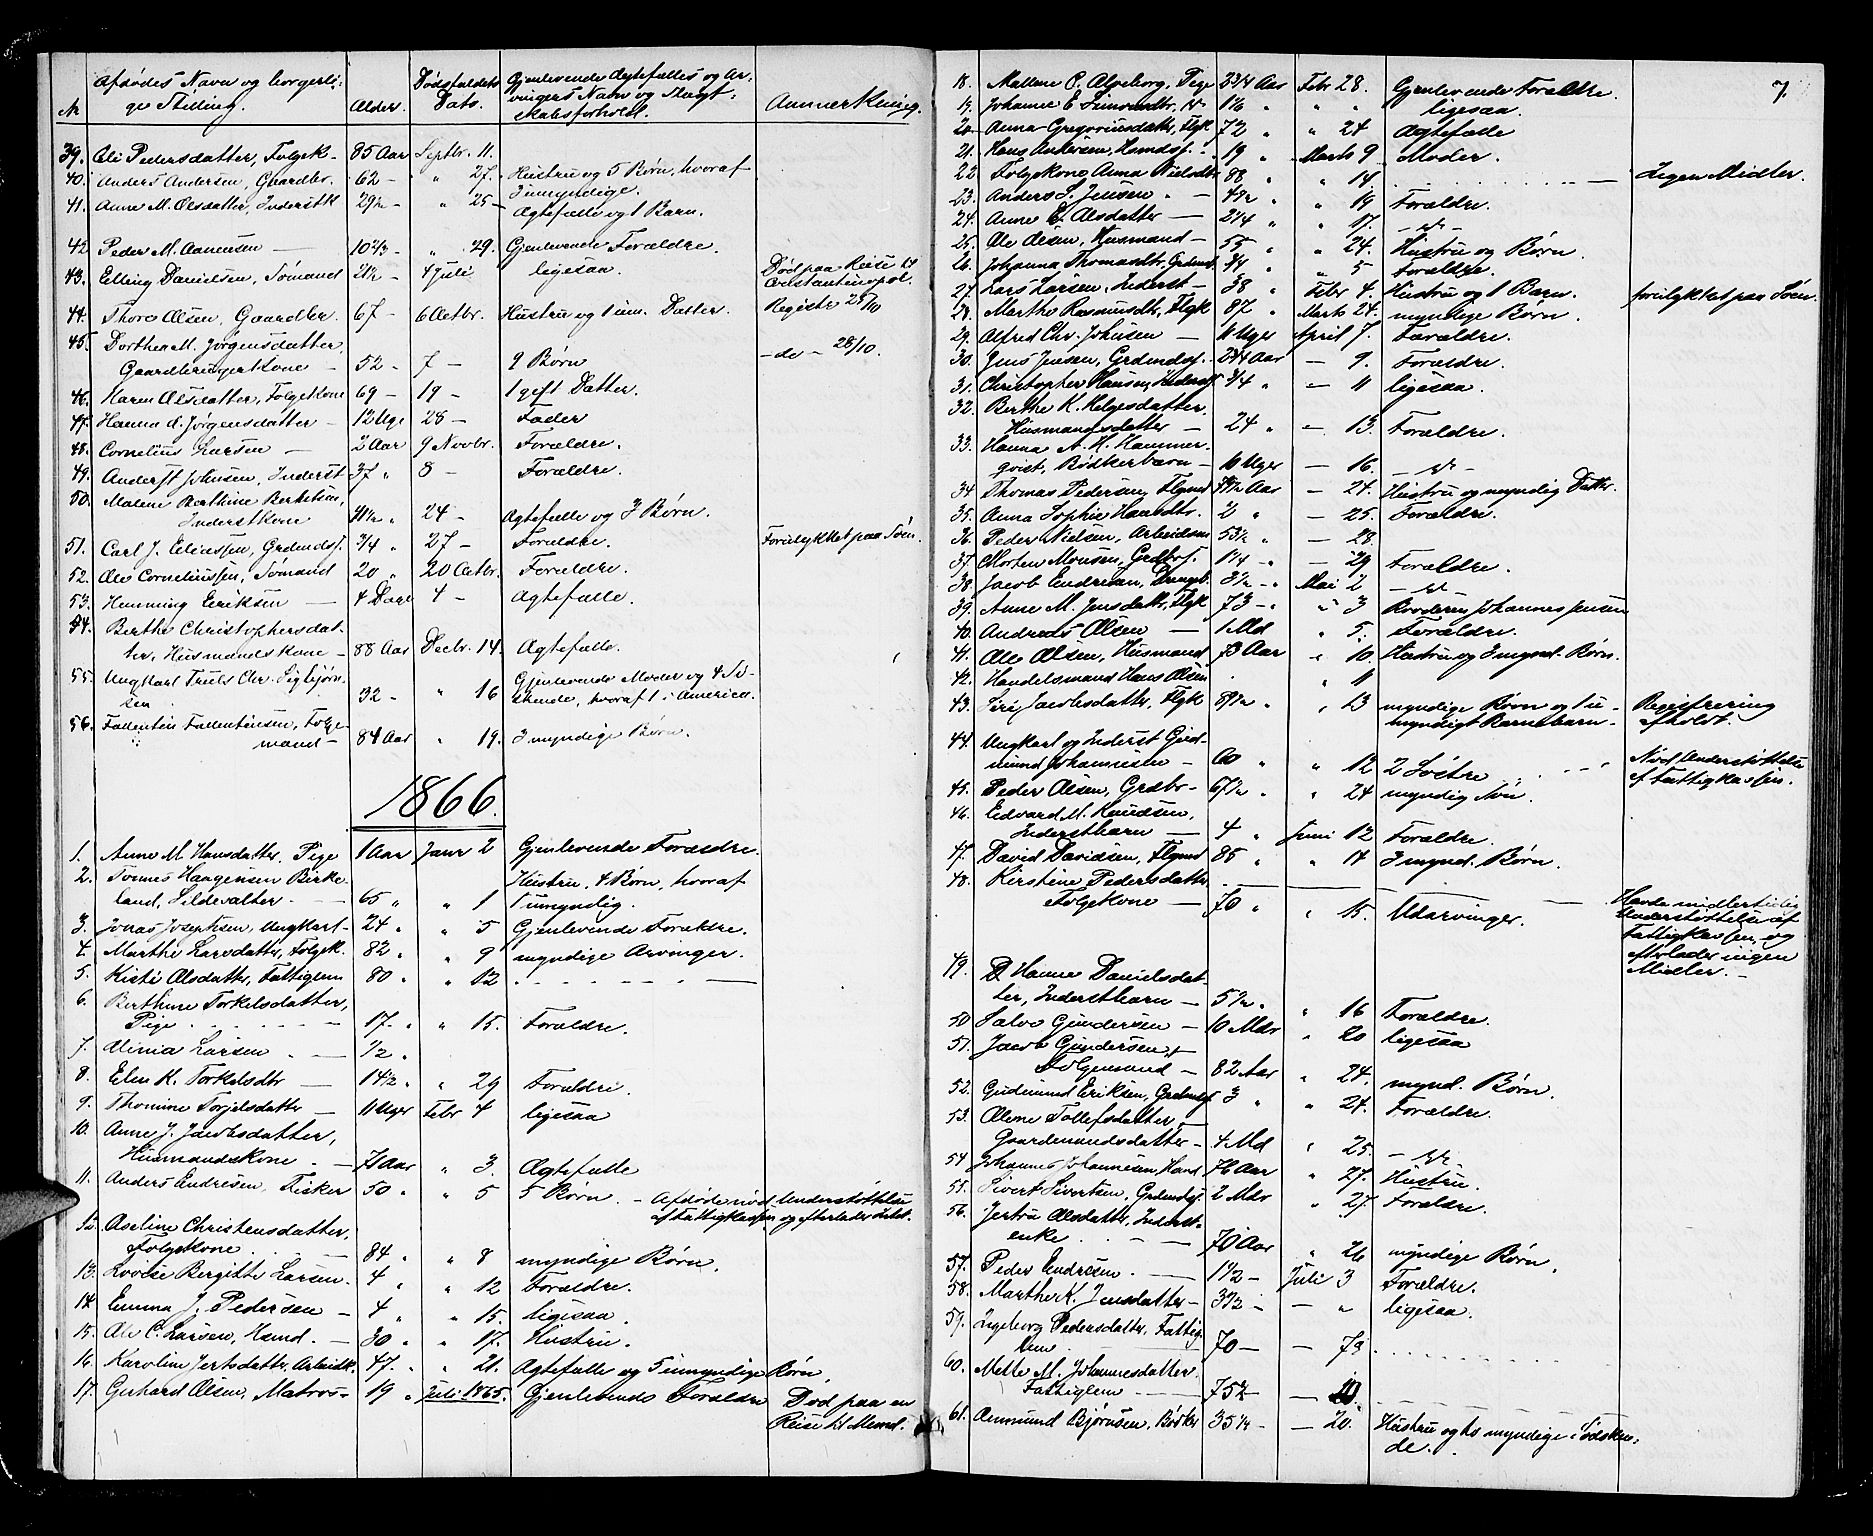 № Afdødes Navn og borgerli- Alder. Dødsfaldets Gjenlevende Ægtefælles og Ar- Anmerkning.
ge Stilling. Dato. vingers Navn og Slægt-
skabsforhold.
39. Pedersdatter, Folgek- 85 Aar Septbr. 11.
40. Anders Andersen, Gaardbr. 62 - " 27. Hustru og 5 Børn, hvoraf
3 umyndige.
41. Anne M. Olsdatter, Inderstk 29½ - " 25 - Ægtefælle og 1 Barn.
42. Peder M. Aanensen — 10 2/3 - " 29. Gjenlevende Forældre.
43. Elling Danielsen, Sømand 21½ - 4 Juli ligesaa. Død paa Reise til
Constantinopel.
44. Thore Olsen, Gaardbr. 67 - 6 Octbr. Hustru og 1 um. Datter. Registr 25/10
45. Dorthea M. Jørgensdatter,
Gaardbrugerkone - 52 - 7 - 9 Børn - do - 28/10.
46. Karen Olsdatter, Folgekone 69 - 19 - 1 gift Datter.
47. Hanna A. Jørgensdatter - 12 Uge 28 - Fader
48. Cornelius Larsen — 2 Aar 9 Novbr. Forældre.
49. Johnsen, Inderst 37 " 8 - Forældre.
50. Malene Berthine
Inderstkone 41½ " 24 - Ægtefælle og 3 Børn.
51. Carl J. Eliassen, Grdmds. 3/4 " 27 - Forældre.
52. Ole Corneliussen, Sømand 20 " 20 Octbr. Forældre. Forulykket paa Søen.
53. Henning Eriksen — 4 Dage 4 - Ægtefælle.
54. Berthe Christophersdat-
ter, Husmandskone - 88 Aar Decbr. 14. Ægtefælle.
55. Ungkarl Truls Chr. Sigbjørn-
sen 32 - " 16 Gjenlevende Moder og 4 Sø-
skende, hvoraf 1 i America.
56. Fallentin Fallentinsen, Folge-
mand - 84 Aar " 19. 3 myndige Børn.
1866.
1. Anne M. Hansdatter, Pige 1 Aar Janr 2 Gjenlevende Forældre.
2. Tønnes Haagensen Birke-
land, Sildevalter. 65 " " 1 Hustru, 4 Børn, hvoraf
1 umyndig.
3. Jonas Josephsen, Ungkarl - 24 " " 5 Gjenlevende Forældre.
4. Marthe Larsdatter, Folgek. 82 " " 9 myndige Arvinger.
5. Olsdatter, Fattiglem 80 " " 12
6. Berthine Torkelsdatter,
Pige 17 " " 15. Forældre.
7. Larsen 1/2 "
8. Elen K. Torkelsdtr — 14½ " " 29 Forældre
9. Thomine Torjelsdatter — 11 Uger Febr 4 ligesaa
10. Anne J. Jacobsdatter,
Husmandskone - 71 Aar " 3. Ægtefælle
11. Anders Endresen, Fisker 50 " " 5 5 Børn. - Afdøde nød Understøttelse
af Fattigkassen og efterlader Intet.
12. Aseline Christensdatter,
Folgekone 84 " " 8 myndige Børn.
13. Lovise Bergitte Larsen. 4 " " 12 Forældre.
14. Emma J. Pedersen — 4 " " 15. ligesaa.
15. Ole C. Larsen, Hsmd. — 30 " " 17. Hustru.
16. Karoline Jertsdatter, Arbeidsk. 47. " " 21. Ægtefælle og 5 umyndige Børn.
17. Gerhard Olsen, Matros - 19 " Juli 1865. Gjenlevende Forældre Død paa en
Reise til Memel.
7.
18. Mallene C. Alveborg, Pige 2 3/4 Aar Febr 28. Gjenlevende Forældre.
19. Johanne E 1½ " " " ligesaa.
20. Anna Gregoriusdatter, Flgk 72 " " 24 Ægtefælle
21. Hans Andersen, Hsmdss. 19 " Marts 9 Moder.
22. Folgekone Anna 88 " " 14. Ingen Midler.
23. Anders S. Jensen. - 4½ " " 19 Forældre.
24. Anne E. Olsdatter — 2 1/4 " " 17. - do -
25. Ole Olsen, Husmand - 55 " " 24. Hustru og Børn.
26. Johanna Thomasdtr, Grdmd. 3/4 " " 5 Forældre.
27. Lars Larsen, Inderst - 38 " Febr 4. Hustru og 1 Barn. forulykket paa Søen.
28. Marthe Rasmusdtr, Flgk 87 " Marts 24. myndige Børn.
29. Alfred Chr. Johnsen — 11 Uger April 7. Forældre.
30. Jens Jensen, Grdmdss. Aar — 9. Forældre.
31. Christopher Hansen, Inderst 3/4 " — 11 ligesaa.
32. Berthe K. Helgesdatter,
Husmandsdatter — 24 " — 13. Forældre.
33. Hanna A. H. Hammer-
qvist, Bødkerbarn - 10 Uger — 16. - do -
34. Thomas Pedersen, Flgmd Aar — 24. Hustru og myndig Datter.
35. Anna Sophie " — 25. Forældre.
36. Peder Nielsen, Arbeidsm 53½ " — 28.
37. Morten Monsen, Grdbrs. 1 1/4 " — 29 Forældre.
38. Jacob Endresen, Dreng. - " Mai 2 - do -
39. Anne M. Jensdatter, Flgk 73 - " " 3 Broderen Johannes Jensen
40. Andreas Olsen — 1 Md " 5. Forældre.
41. Ole Olsen, Husmand 73 Aar " 10. Hustru og 3 mynd. Børn.
42. Handelsmand Hans Olsen " 11
43. Siri Jacobsdatter, Flgk " " 13 myndige Børn og 1 u- Registrering
myndigt Barnebarn. afholdt.
44. Ungkarl og Inderst Gud-
mund Johannesen - 60 " " 12 2 Søstre. Nød Understøttelse
af Fattigkassen.
45. Peder Olsen, Grdbr - 67½ " " 24 myndig Søn.
46. Edvard M. Knudsen,
Inderstbarn — 4 " Juni 12 Forældre.
47. David Davidsen, Flgmd 85 " " 14 3 mynd. Børn.
48. Kirstine Pedersdatter
Folgekone — 70 " " 15. Udarvinger. Havde midlertidig
Understøttelse af
Fattigkassen, og
efterlader ingen
Midler. -
49. Hanne Danielsdat-
ter, Inderstbarn — 5½ " " 16 Forældre.
50. Salve Gundersen — 10 Mdr " 20 ligesaa
51. Jacob Gundersen,
Folgemand — 82 Aar " 24. mynd. Børn.
52. Gudmund Eriksen, Grdmds. 3 " " 24. Forældre.
53. Olene Tollefsdatter,
Gaardmandsdatter - 4 Md " 25. - do -
54 Johannes Johannesen 76 Aar " 27. Hustru.
55. Sivert Sivertsen, Grdmds. 2 Mdr " 27. Forældre.
56. Jertru Olsdatter, Inderst-
enke. — 70 Aar " 26 myndige Børn.
57. Peder Endresen. — 1½ - Juli 3 Forældre.
58. Marthe K. Jensdatter - 3½ - — " ligesaa.
59. Ingeborg Pedersdatter, Fattig-
lem 70 — —
60. Mette M. Johannesdatter
Fattiglem 75½ —
61. Aanmund Bjørnsen, Bødker 35 1/4 - — 20. Hustru og to myndige Sødsken-
de.